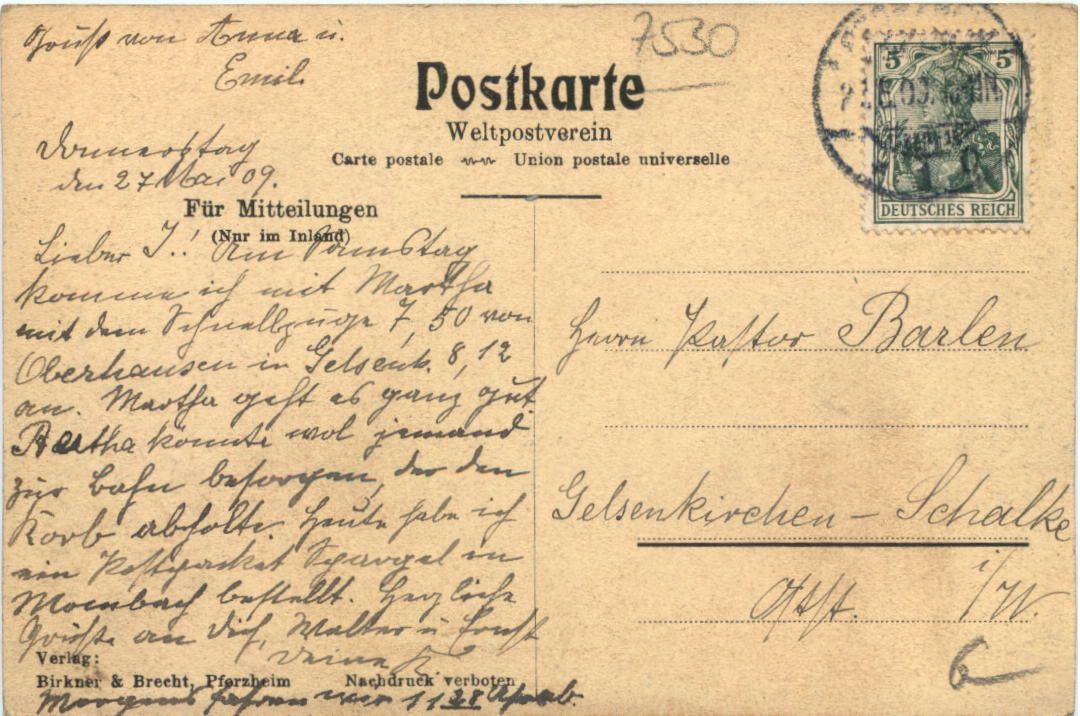 Gruß von Anna u.
Emil
7530
Postkarte
Weltpostverein
Carte postale Union postale universelle
5 5
DEUTSCHES REICH
Donnerstag
den 27 Mai 09.
Für Mitteilungen
(Nur im Inland)
Lieber J.! Am Samstag
komme ich mit Martha
mit dem Schnellzuge 7,50 von
Oberhausen in Gelsenk. 8,12
an. Martha geht es ganz gut
Bertha könnte wol jemand
zur Bahn besorgen, der den
Korb abholte. Heute habe ich
ein Postpacket Spargel in
Mombach bestellt. Herzliche
Grüße an dich, Walter u Ernst
Deine
Verlag:
Birkner & Brecht, Pforzheim Nachdruck verboten
Morgens fahren wir 11 28 ab.
Herrn Pastor Barlen
Gelsenkirchen – Schalke
i/W.
6